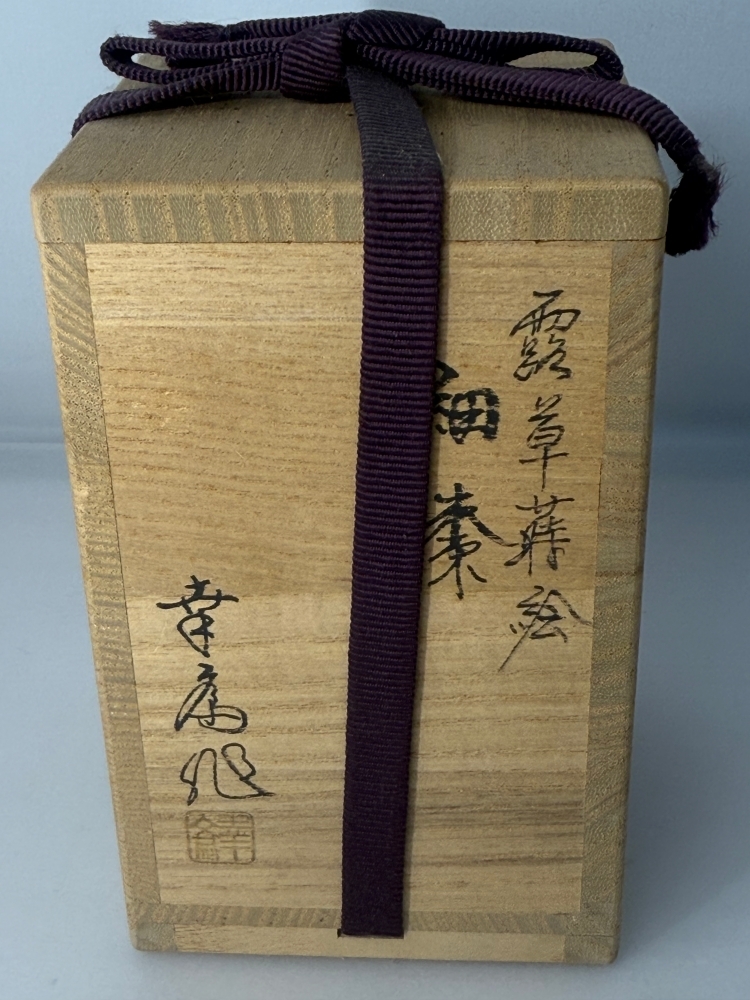 露草蒔絵
細棗
幸 作